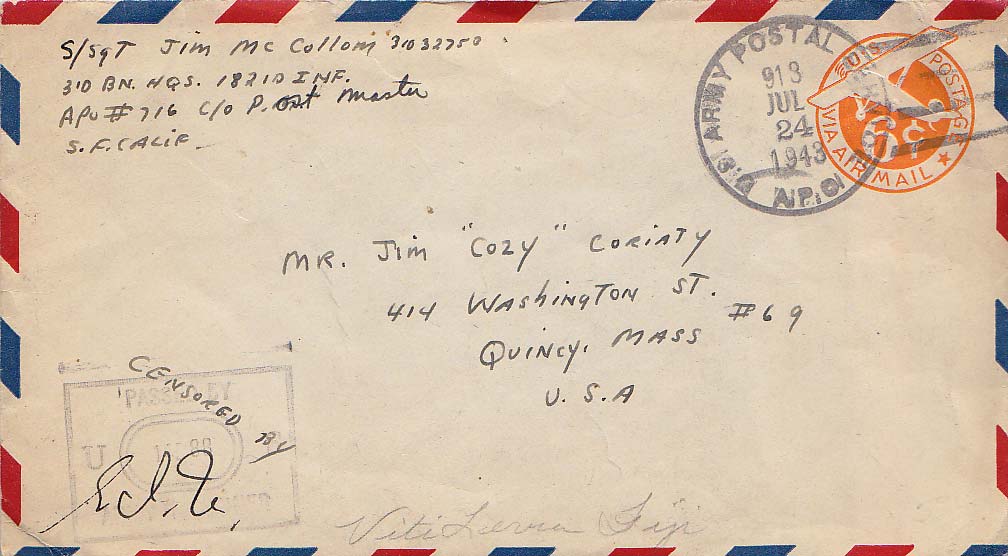 S/Sgt Jim Mc Collom 31032750
3RD BN. HQS. 182ND INF.
APO #716 C/O P. Master
S.F. CALIF.
ARMY POSTAL
913
JUL
24
1943
A.P.O.
U.S. POSTAGE
6¢
VIA AIR MAIL
MR. Jim "COZY" CORIATY
414 WASHINGTON ST.
#69
QUINCY, MASS
U.S.A
CENSORED BY
PASSED BY
U
Viti Levu Fiji